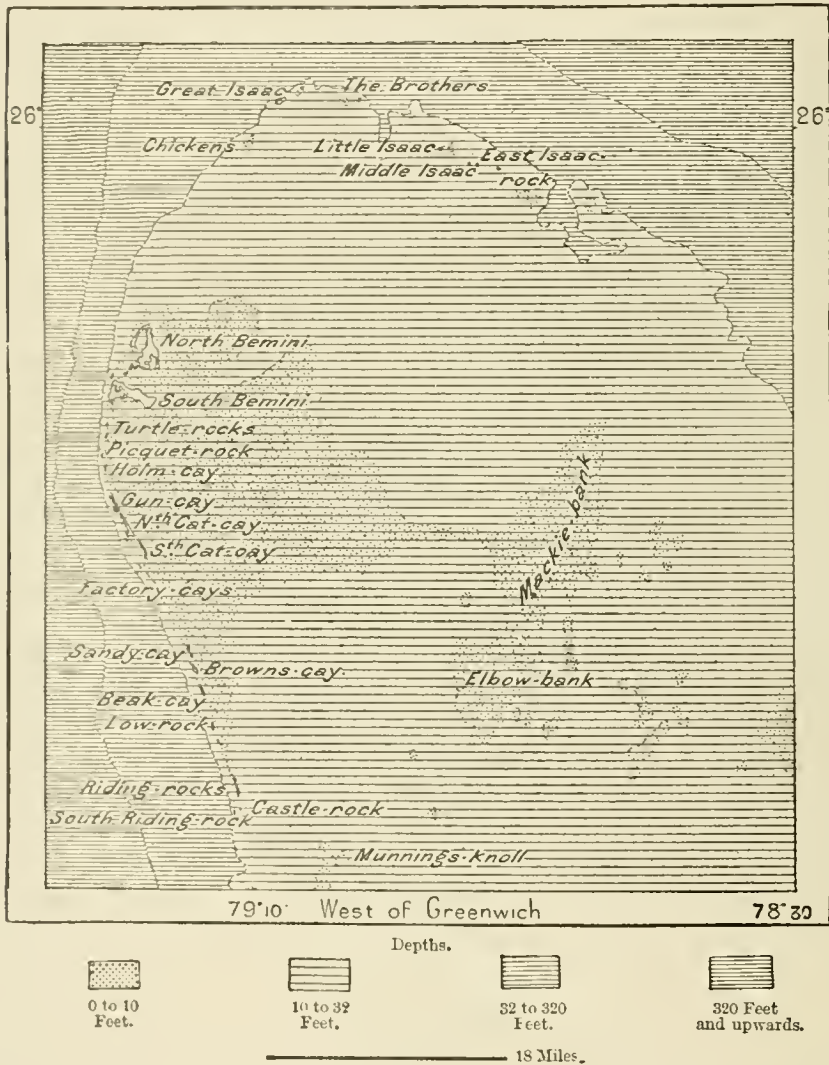 Great Isaac The Brothers
26° 26°
Chickens Little Isaac East Isaac
Middle Isaac rock
North Bemini
South Bemini
Turtle-rocks
Picquet-rock
Holm-cay
Gun-cay
Nth Cat-cay
Sth Cat-cay
Mackie-bank
Factory-cays
Sandy-cay
Browns-cay
Elbow-bank
Beak-cay
Low-rock
Riding-rocks
Castle-rock
South-Riding-rock
Munnings-Knoll
79°10' West of Greenwich 78°30
Depths.
0 to 10 10 to 32 32 to 320 320 Feet
Feet. Feet. Feet. and upwards.
18 Miles.